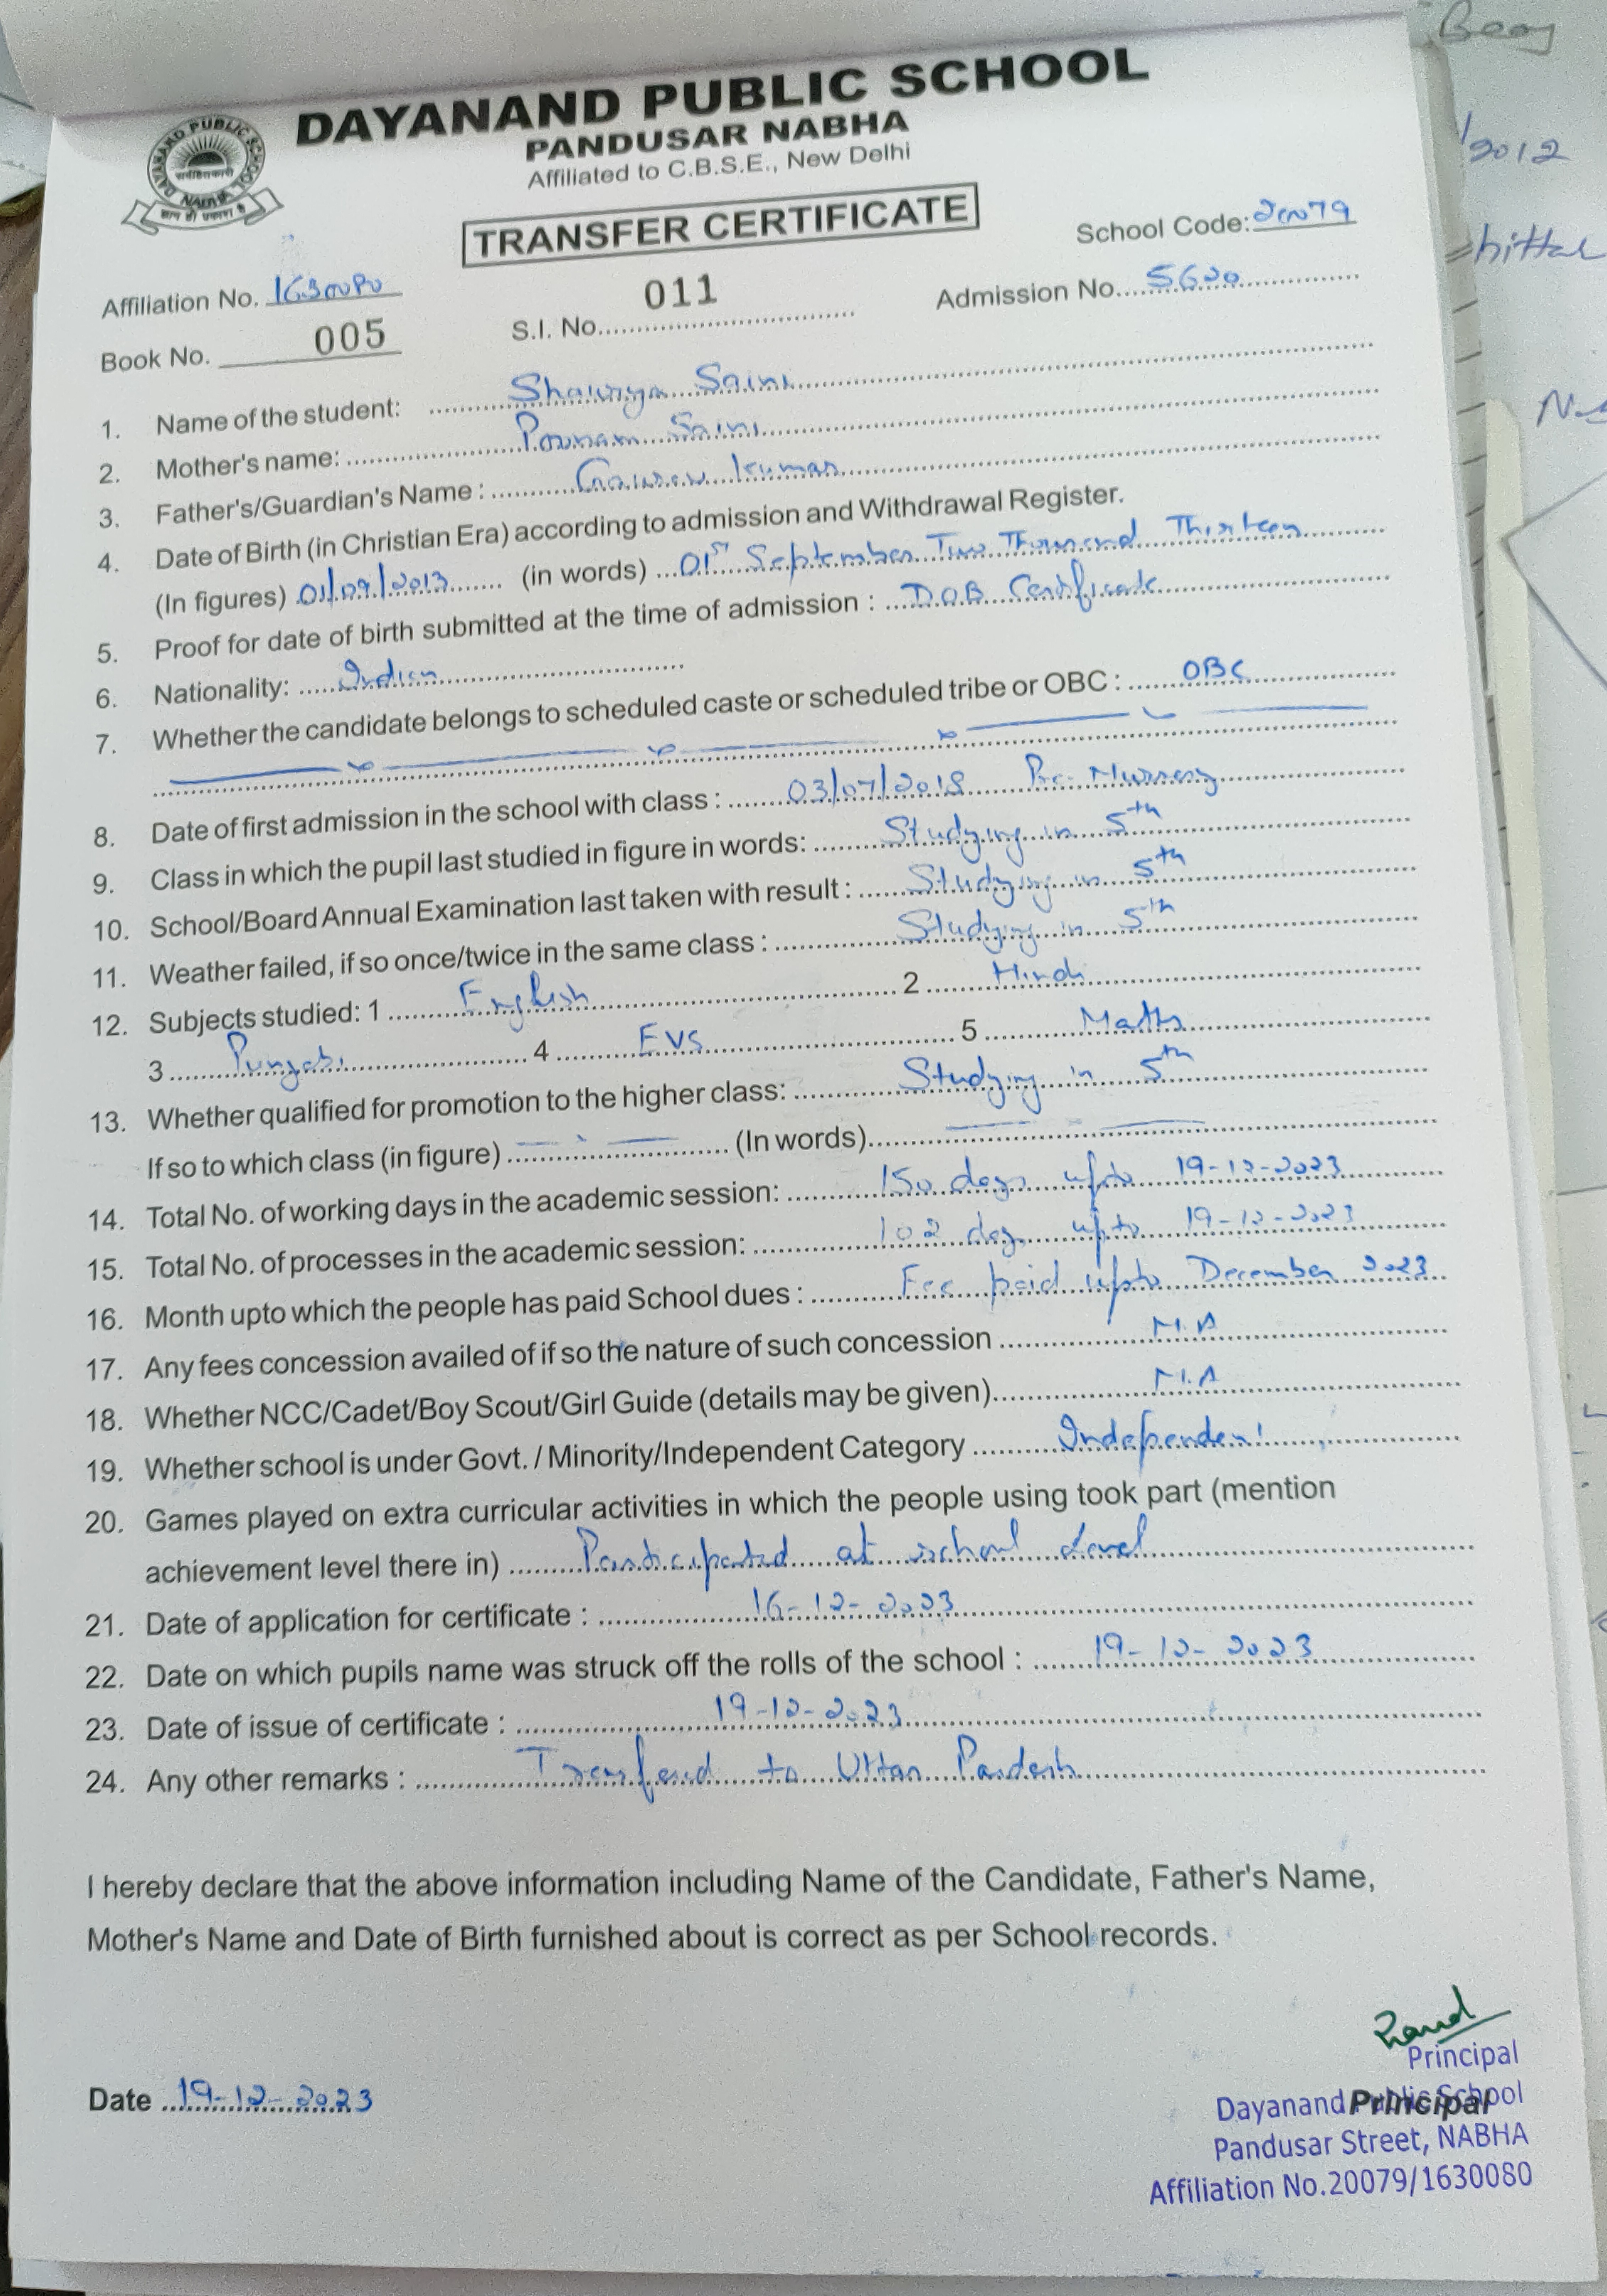 DAYANAND PUBLIC SCHOOL
PANDUSAR NABHA
Affiliated to C.B.S.E., New Delhi
DAYANAND PUBLIC SCHOOL
NABHA
TRANSFER CERTIFICATE
School Code: 20079
Affiliation No. 1630080
S.I. No. 011
Admission No. 5620
Book No. 005
1. Name of the student: Shaurya Saini
2. Mother's name: Poonam Saini
3. Father's/Guardian's Name : Gaurav Kumar
4. Date of Birth (in Christian Era) according to admission and Withdrawal Register.
(In figures) 01/09/2013 (in words) 01st September Two Thousand Thirteen
5. Proof for date of birth submitted at the time of admission : D.O.B Certificate
6. Nationality: Indian
7. Whether the candidate belongs to scheduled caste or scheduled tribe or OBC : OBC
8. Date of first admission in the school with class : 03/07/2018 Pre-Nursery
9. Class in which the pupil last studied in figure in words: Studying in 5th
10. School/Board Annual Examination last taken with result : Studying in 5th
11. Weather failed, if so once/twice in the same class : Studying in 5th
12. Subjects studied: 1 English 2 Hindi
3 Punjabi 4 EVS 5 Maths
13. Whether qualified for promotion to the higher class: Studying in 5th
If so to which class (in figure) (In words)
14. Total No. of working days in the academic session: 150 days upto 19-12-2023
15. Total No. of processes in the academic session: 102 days upto 19-12-2023
16. Month upto which the people has paid School dues : Fee paid upto December 2023
17. Any fees concession availed of if so the nature of such concession N.A
18. Whether NCC/Cadet/Boy Scout/Girl Guide (details may be given) N.A
19. Whether school is under Govt. / Minority/Independent Category Independent
20. Games played on extra curricular activities in which the people using took part (mention
achievement level there in) Participated at school level
21. Date of application for certificate : 16-12-2023
22. Date on which pupils name was struck off the rolls of the school : 19-12-2023
23. Date of issue of certificate : 19-12-2023
24. Any other remarks : Transfered to Uttar Pardesh
I hereby declare that the above information including Name of the Candidate, Father's Name,
Mother's Name and Date of Birth furnished about is correct as per School records.
Principal
Date 19-12-2023
Dayanand Public School
Principal
Pandusar Street, NABHA
Affiliation No.20079/1630080
2012